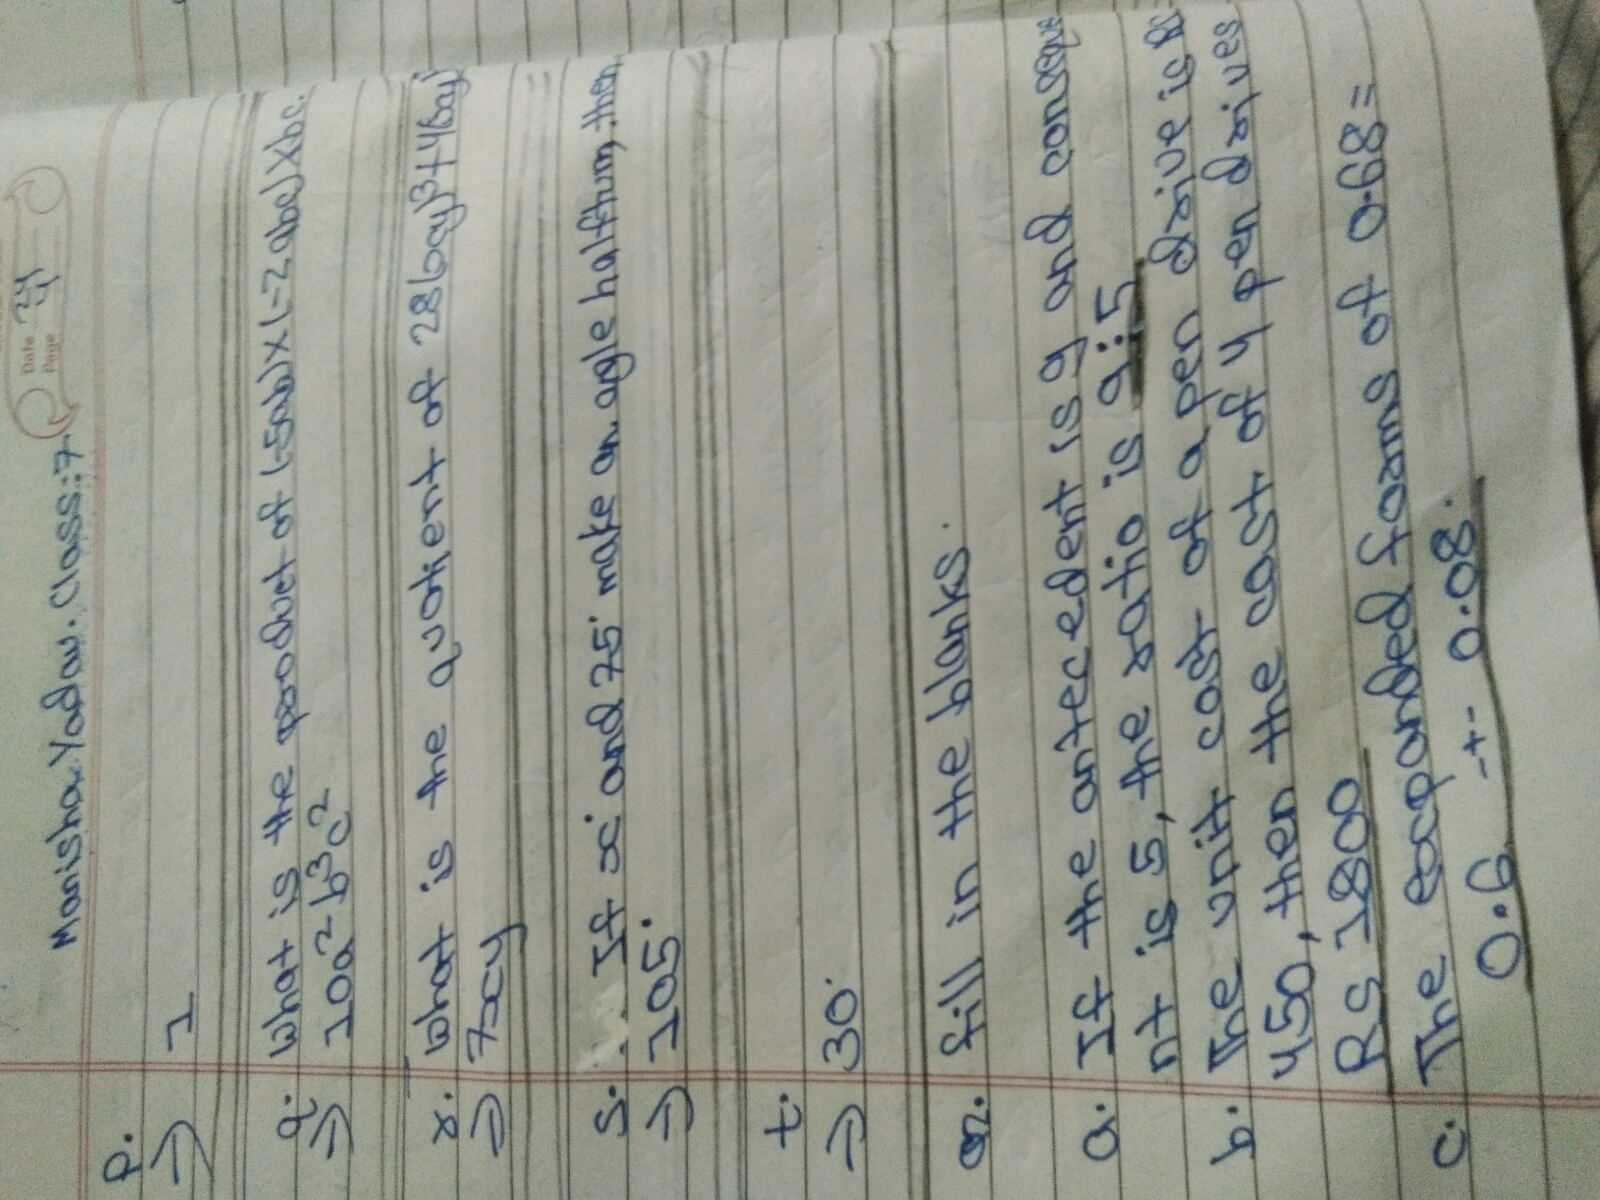 Date 24
Page 4
Manisha. Yadav. Class:7
p.
→ 1
q. what is the product of (-5ab)x(-2abc)xbc.
→ 10a²b³c²
r. what is the quotient of
→ 7xcy
s. If x° and 75° make an agle halfturn, then
→ 105°
t.
→ 30°
2. fill in the blanks.
a. If the antecedent is 9 and conseque
nt is 5, the ratio is 9:5
b. The unit cost of a pen drive is Rs
450, then the cost of 4 pen drives
Rs 1800
c. The expanded forms of 0.68=
0.6 -+- 0.08.